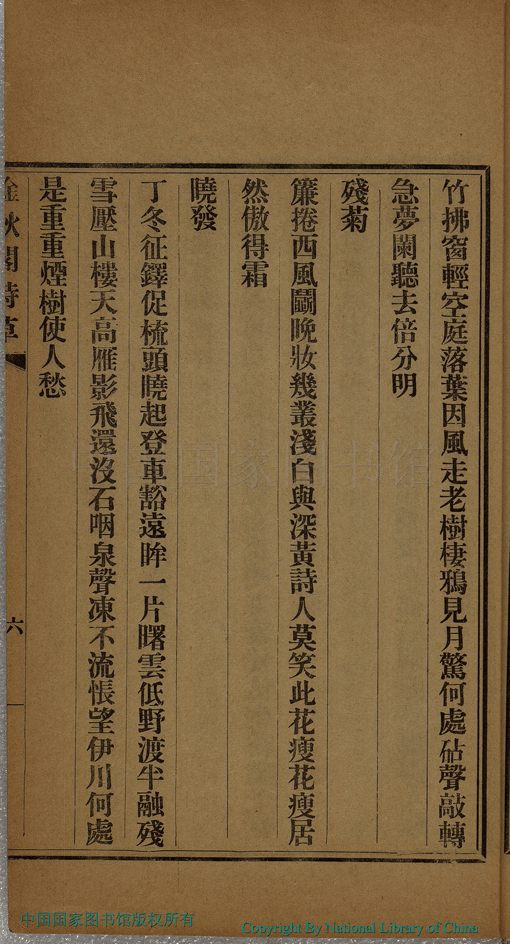 竹拂窗輕空庭落葉因風走老樹棲鴉見月驚何處砧聲敲轉
急夢闌聽去倍分明
殘菊
簾捲西風鬭晚妝幾叢淺白與深黃詩人莫笑此花瘦花瘦居
然傲得霜
曉發
丁冬征鐸促梳頭曉起登車豁遠眸一片曙雲低野渡半融殘
雪壓山樓天高雁影飛還沒石咽泉聲凍不流悵望伊川何處
是重重煙樹使人愁
秋閣詩草
六
中国国家图书馆版权所有
Copyright By National Library of China